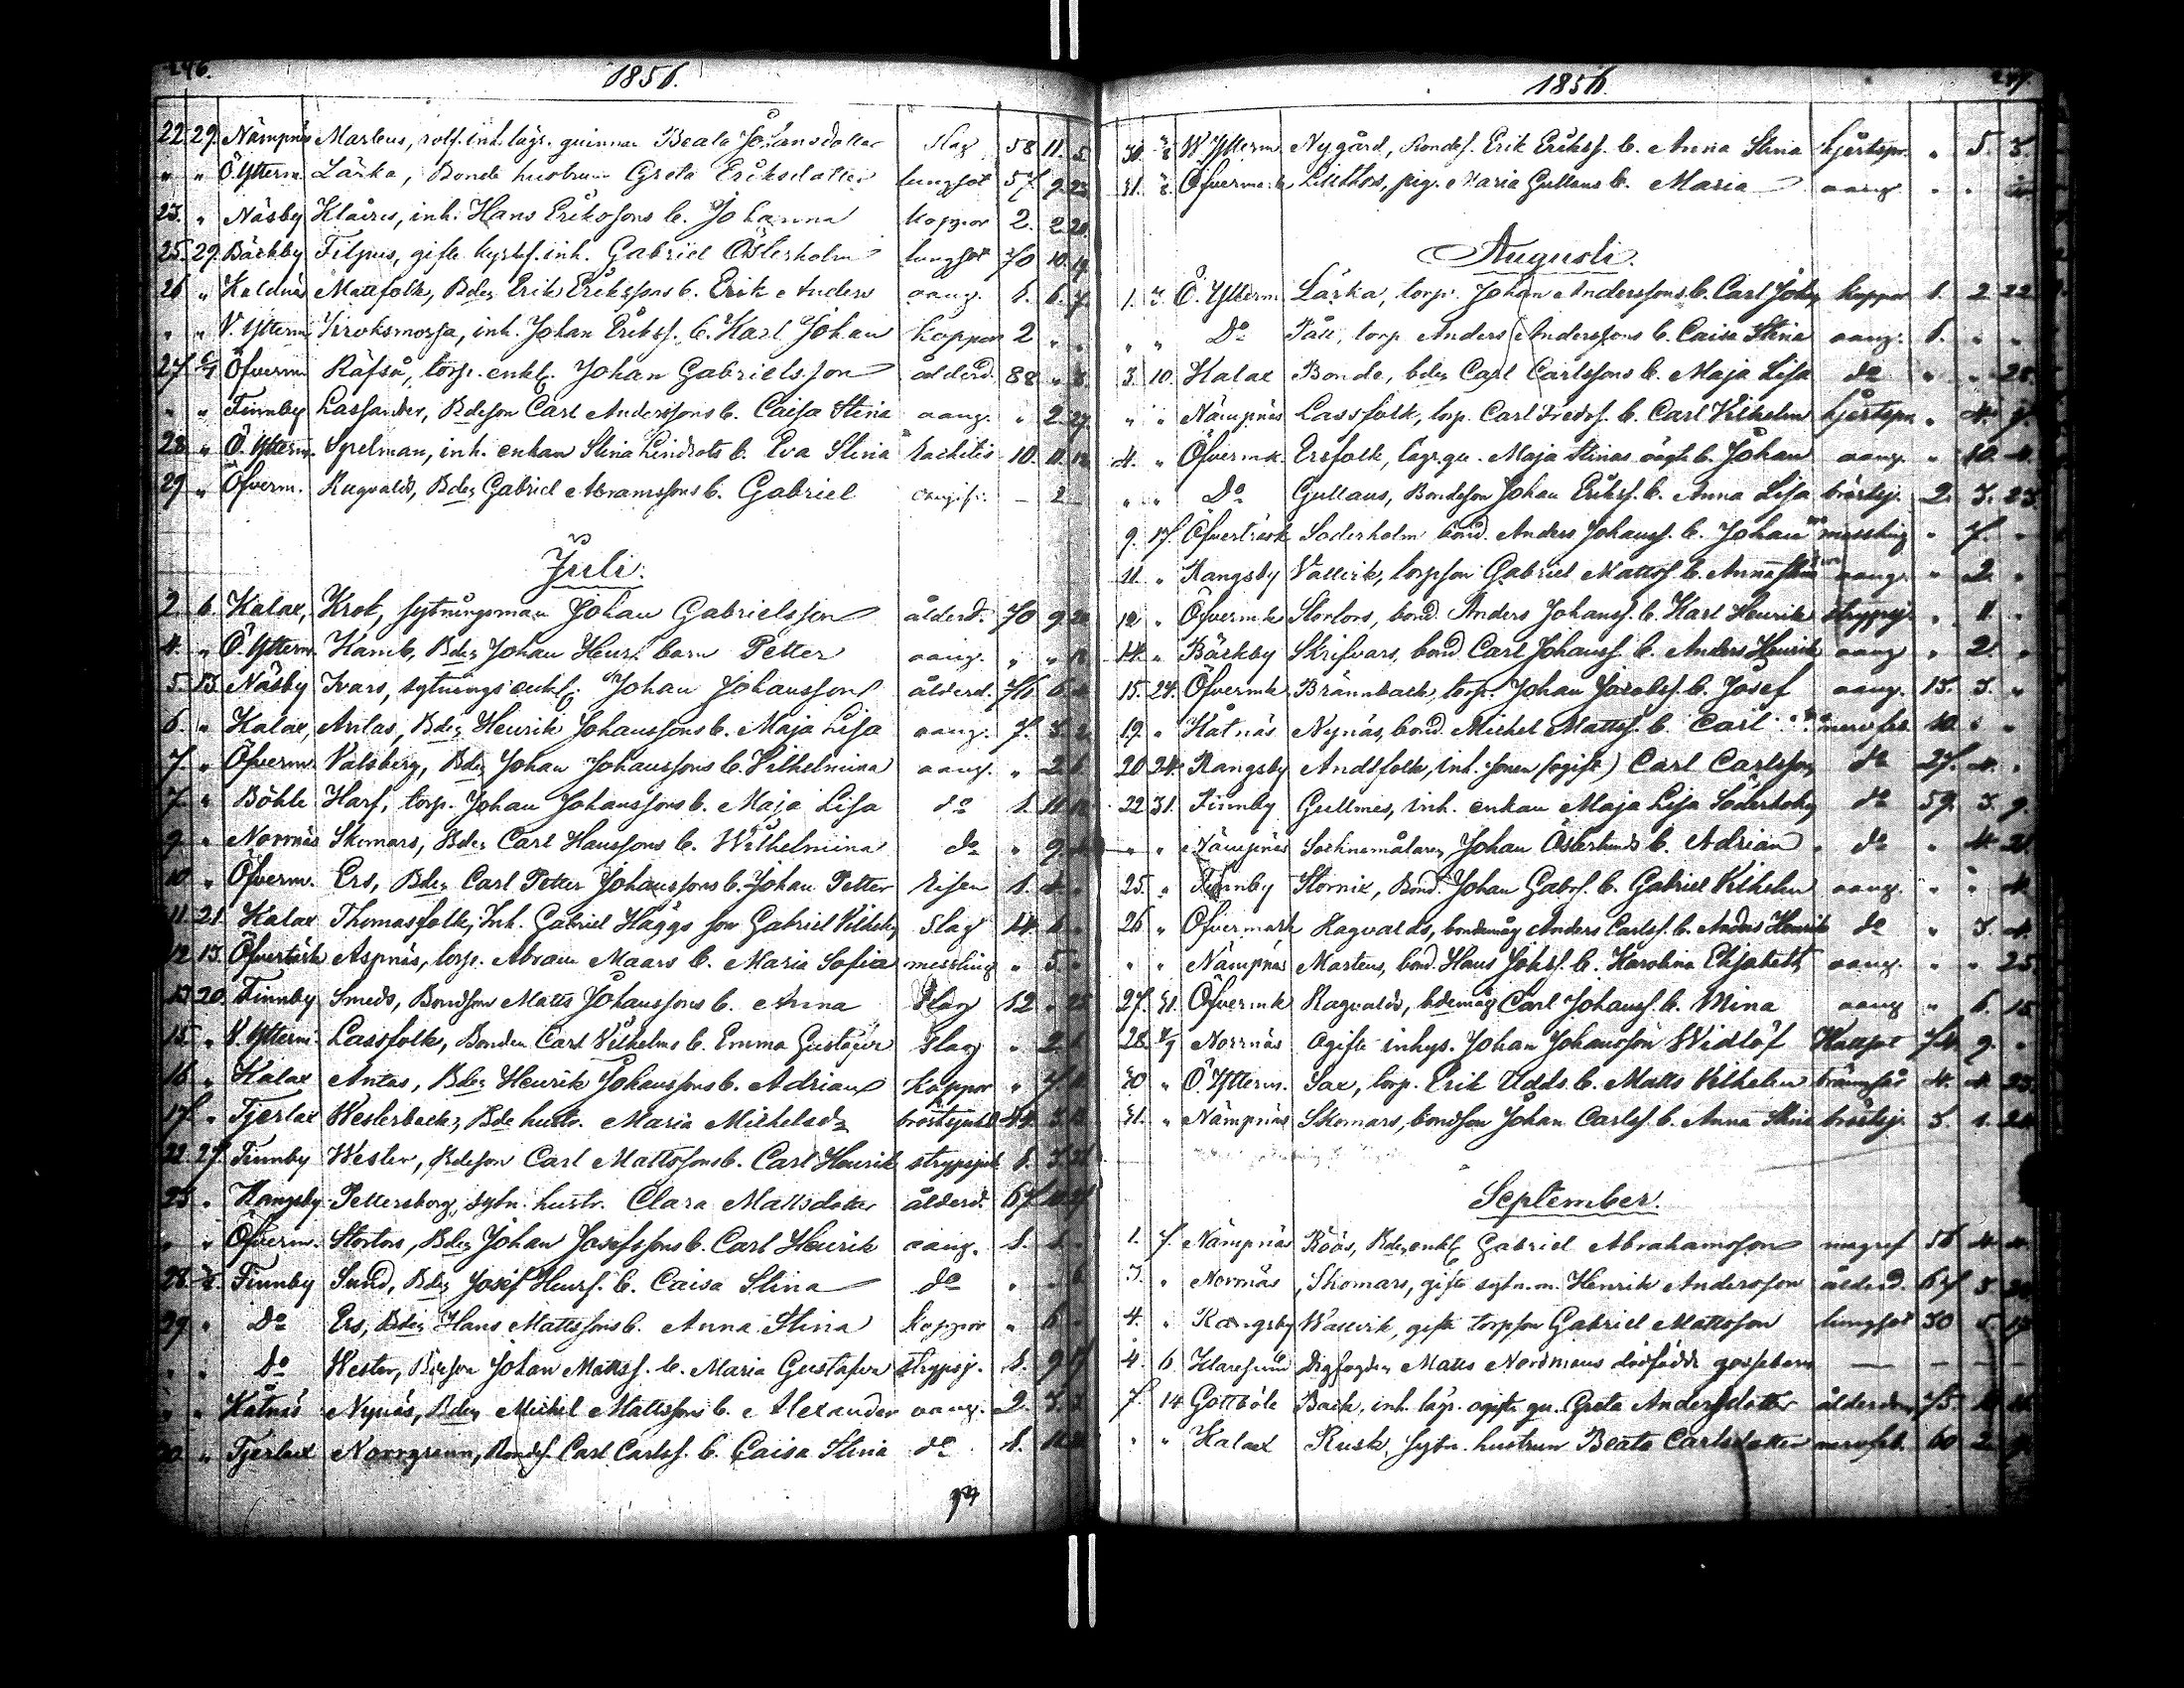 246.
1856.
22. 29. Nämpnäs Martens, rotf. inh. lägr. quinnan Beata Johansdotter Slag 58 11. 5.
" " Ö. Ytterm. Lärka, Bonde hustrun Greta Eriksdotter lungsot 57 9. 23
23. " Näsby Klåres, inh. Hans Erikssons b. Johanna koppor 2. 2. 20.
25. 29. Bäckby Filpus, gifte inh. Gabriel Österholm lungsot 70 10. 19.
26 " Kaldnäs Mattfolk, Bden Erik Erikssons b. Erik Anders oang. 1. 6. 7.
" " V. Ytterm. inh. Johan Erikss. b. Karl Johan Koppor 2 " "
27 6/7 Öfverm. Räfså, torp. enkl. Johan Gabrielsson ålderd. 88 " 8.
" " Finnby Lassander, Bdeson Carl Anderssons b. Caisa Stina oang. " 2. 27.
28 " Ö. Ytterm. Spelman, inh. enkan Stina Lindrots b. Eva Stina Rachitis 10. 11. 12
29 " Öfverm. Ragvalds, Bden Gabriel Abramssons b. Gabriel oangif. — 2
Juli.
2 6. Kalax, Krok, sytningsman Johan Gabrielsson ålderd. 70 9. 20
4. " Ö. Ytterm. Kamb, Bden Johan Henrs. barn Petter oang. " " 18
5. 13. Näsby Ivars, sytnings enkl. Johan Johansson ålderd. 76 6.
6. " Kalax, Antas, Bden Henrik Johanssons b. Maja Lisa oang. 7. 3. 2.
7. " Öfverm. Valsberg, Bden Johan Johanssons b. Vilhelmina oang. " 2. 1.
7. " Böhle Harf, torp. Johan Johanssons b. Maja Lisa do 1. 11 12
9. " Norrnäs Skomars, Bden Carl Hanssons b. Wilhelmina do " 9.
10 " Öfverm. Ers, Bden Carl Petter Johanssons b. Johan Petter Risen 1. 4. "
11. 21. Kalax Thomasfolk, Inh. Gabriel Häggs son Gabriel Vilhelm Slag 14. 6. "
12 13. Öfverträsk Aspnäs, torp. Abram Maars b. Maria Sofia messling " 5. "
13 20. Finnby Smeds, Bondson Matts Johanssons b. Anna Slag 12 " 25
15. " V. Ytterm. Lassfolk, Bonden Carl Vilhelms b. Emma Gustafva Slag " 2. 6
16 " Kalax Antas, Bden Henrik Johanssons b. Adrian koppor " 7.
17. " Tjerlax Westerback, Bde hustr. Maria Michelsdr bröstsjukd. 44. 3.
22. 27. Finnby Wester, Bdeson Carl Mattssons b. Carl Henrik strypsjuk 1. 3. 21
23 " Rangsby Pettersborg, sytn. hustr. Clara Mattsdotter ålderd. 67
" " Öfverm. Stortors, Bden Johan Josefssons b. Carl Henrik oang. 1. 1.
26. 3/8. Finnby Sund, Bden Josef Henrs. b. Caisa Stina do " " 6
29 " Do Ers, Bden Hans Mattssons b. Anna Stina koppor " 6
" " Do Wester, Bdeson Johan Mattss. b. Maria Gustafva strypsj. 1. 9. 17
" " Kåtnäs Nynäs, Bden Michel Mattssons b. Alexander oang. 2. 3. 3
30 " Tjerlax Norrgrann, Bonds. Carl Carlss. b. Caisa Stina do 1.
1856.
247.
30. 3/8 W. Ytterm. Nygård, Bondes. Erik Erikss. b. Anna Stina hjertspr. " 5. 3.
31. 3/8. Öfvermark pig. Maria Gullans b. Maria oang. " "
Augusti.
1. 3. Ö. Ytterm. Lärka, torp. Johan Anderssons b. Carl Johan koppor 1. 2. 22
" " Do Påll, torp. Anders Anderssons b. Caisa Stina oang. 1. " "
3. 10. Kalax Bonde, bden Carl Carlssons b. Maja Lisa do " " 28.
" " Nämpnäs Lassfolk, torp. Carl Fredrs. b. Carl Vilhelm hjertspr. " 4. 9.
4. " Öfvermk. Ersfolk, lägr. qu. Maja Stinas oägt. b. Johan oang. " 10. 4.
" " Do Gullans, Bondeson Johan Erikss. b. Anna Lisa bröstsj. 2. 3. 23.
9. 17. Öfverträsk Söderholm bond. Anders Johanss. b. Johan messling " 7. "
11. " Rangsby Vallvik, torpson Gabriel Mattss. b. Anna Stina oang. " 2. "
12 " Öfvermk Stortors, bond. Anders Johanss. b. Karl Henrik strypsj. " 11. "
14. " Bäckby Skrifvars, bond. Carl Johanss. b. Anders Henrik oang. " 2. "
15. 24. Öfvermk Brännback, torp. Johan Jacobss. b. Josef oang. 13. 3. "
19. " Kåtnäs Nynäs, bond. Michel Mattss. b. Carl nervfeb. 10. " "
20 24. Rangsby Andtfolk, inh. sonen (ogift) Carl Carlsson do 27. 4. "
22 31. Finnby Gullmes, inh. enkan Maja Lisa Söderholm do 59. 3. 9.
" " Nämpnäs Socknemålaren Johan Österlunds b. Adrian do " 4. 21.
25. " Finnby Stornix, Bond. Johan Gabrs. b. Gabriel Vilhelm oang. " " 4.
26 " Öfvermark Ragvalds, bondemåg Anders Carlss. b. Anders Henrik do " 3. 4.
" " Nämpnäs Martens, bond. Hans Johss. b. Karolina Elisabeth oang. " " 25.
27. 31. Öfvermk Ragvalds, bdemåg Carl Johanss. b. Mina oang " 6. 15
28. 7/9 Norrnäs Ogifte inhys. Johan Johansson Widlöf 74. 9. "
30 " Ö. Ytterm. Sax, torp. Erik Udds b. Matts Vilhelm 4. 4. 23.
31. " Nämpnäs Skomars, bondson Johan Carlss. b. Anna Stina bröstsj. 3. 1. 28.
September.
1. 7. Nämpnäs Röös, Bde, enkl. Gabriel Abrahamsson magref 56 4. 4.
3. " Norrnäs, Skomars, gifte sytn. m. Henrik Andersson ålderd. 67 3.
4. " Rangsby Wallvik, gifte torpson Gabriel Mattsson lungsot 30 5. 17
4. 6. Matts Nordmans dödfödde gossebarn — —
7. 14 Gottböle Back, inh. lägr. ogifta qu. Greta Andersdotter ålderdom 75.
" " Kalax Rusk, sytn. hustrun Beata Carlsdotter nervfeb. 60 2. 9.